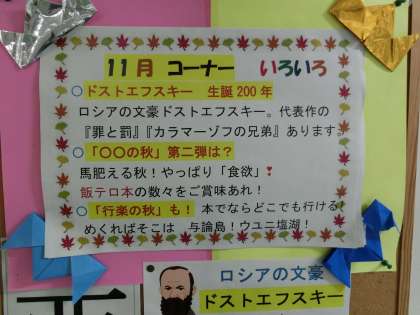 11月 コーナー いろいろ
○ドストエフスキー 生誕200年
ロシアの文豪ドストエフスキー。代表作の
『罪と罰』『カラマーゾフの兄弟』あります。
○「〇〇の秋」第二弾は？
馬肥える秋！やっぱり「食欲」❣
飯テロ本の数々をご賞味あれ！
○「行楽の秋」も！ 本でならどこでも行ける！
めくればそこは 与論島！ウユニ塩湖！
ロシアの文豪
ドストエフスキー